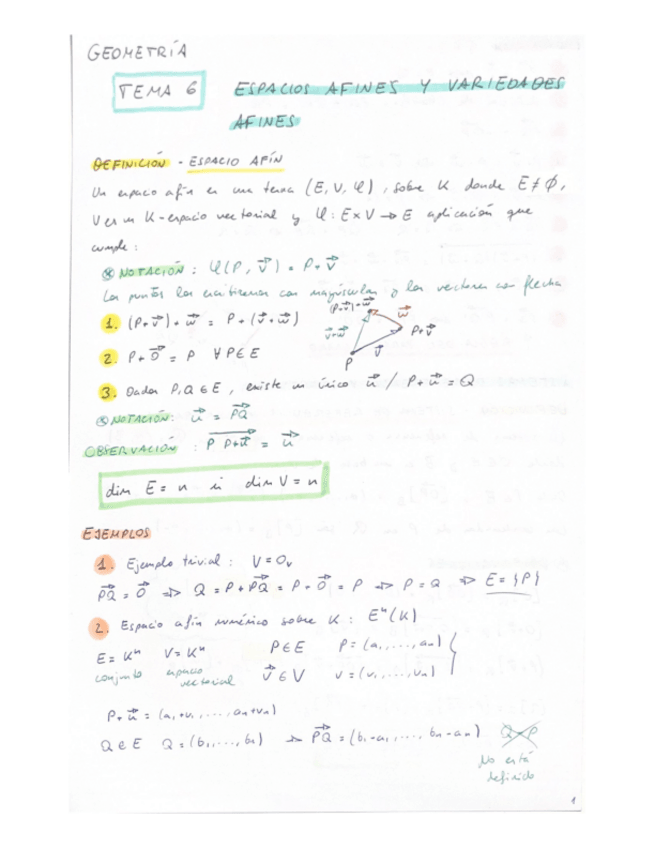 GEOMETRÍA
TEMA 6 ESPACIOS AFINES Y VARIEDADES
AFINES
DEFINICIÓN - ESPACIO AFÍN
Un espacio afín es una terna (E, V, φ), sobre K donde E ≠ ∅,
V es un K-espacio vectorial y φ: E×V → E aplicación que
cumple:
⊛ NOTACIÓN: φ(P, v⃗) = P+v⃗
Los puntos los escribiremos con mayúsculas y los vectores con flecha
1. (P+v⃗)+w⃗ = P+(v⃗+w⃗)
(P+v⃗)+w⃗
w⃗
v⃗+w⃗
P+v⃗
v⃗
P
2. P+0⃗ = P ∀P∈E
3. Dados P,Q ∈ E, existe un único u⃗ / P+u⃗ = Q
⊛ NOTACIÓN: u⃗ = PQ⃗
OBSERVACIÓN: P P+u⃗ = u⃗
dim E = n si dim V = n
EJEMPLOS
1. Ejemplo trivial: V = 0ᵥ
PQ⃗ = 0⃗ ⇒ Q = P+PQ⃗ = P+0⃗ = P ⇒ P = Q ⇒ E = {P}
2. Espacio afín numérico sobre K: Eⁿ(K)
E = Kⁿ V = Kⁿ P∈E P = (a₁, ..., aₙ)
conjunto espacio vectorial v⃗∈V v = (v₁, ..., vₙ)
P+u⃗ = (a₁+v₁, ..., aₙ+vₙ)
Q∈E Q = (b₁, ..., bₙ) ⇒ PQ⃗ = (b₁-a₁, ..., bₙ-aₙ) Q-P
No está
definido
1